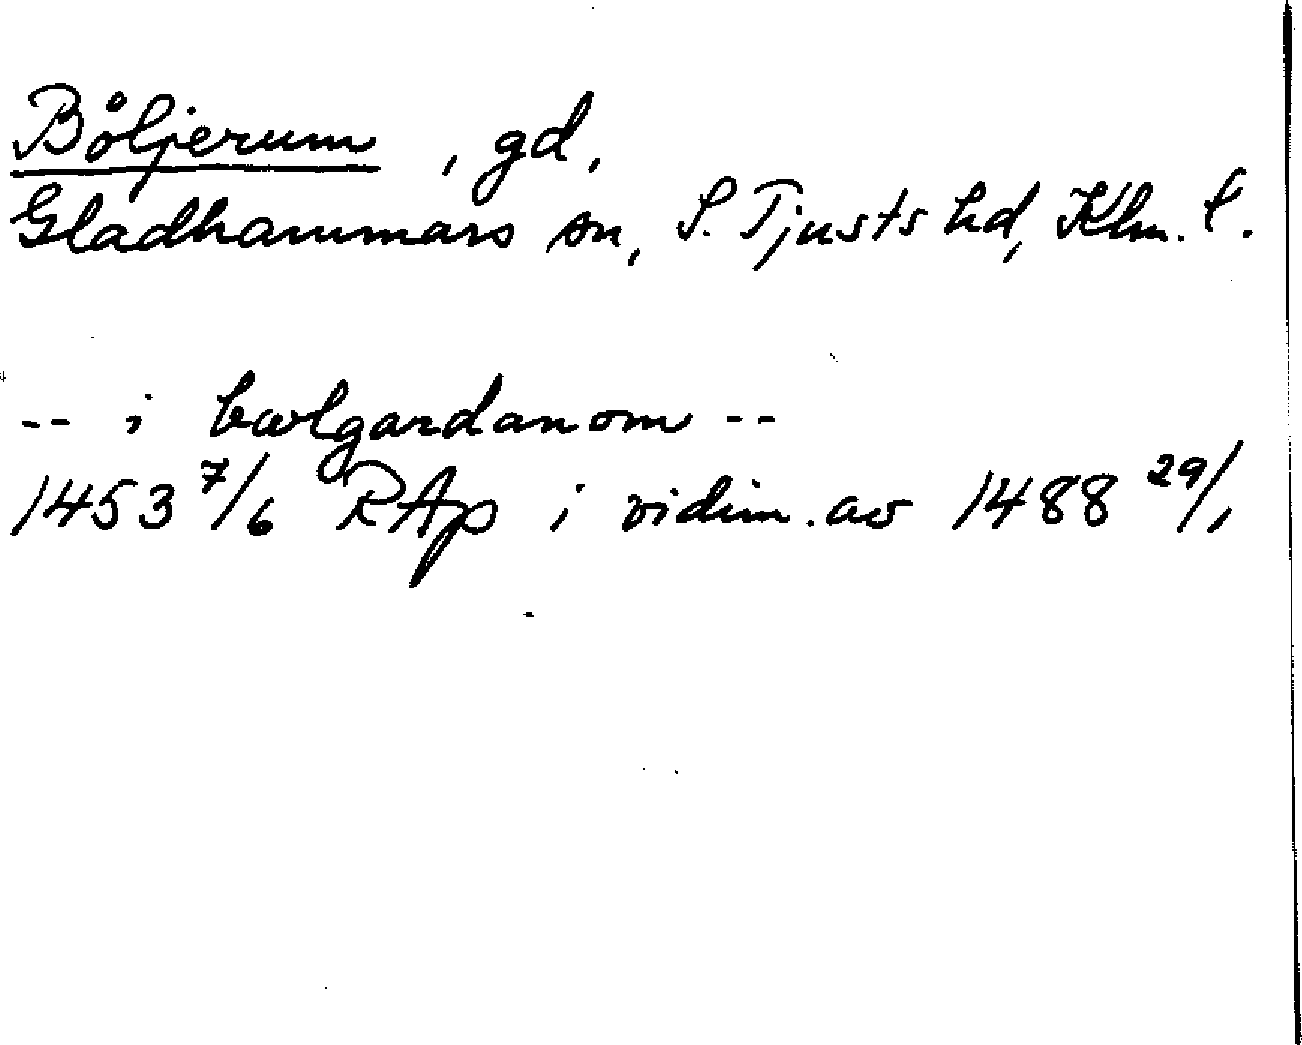 Böljerum, gd,
Gladhammars sn, S. Tjusts hd, Klm. l.
-- i bælgardanom --
1453 7/6 RAp i vidim. av 1488 29/1